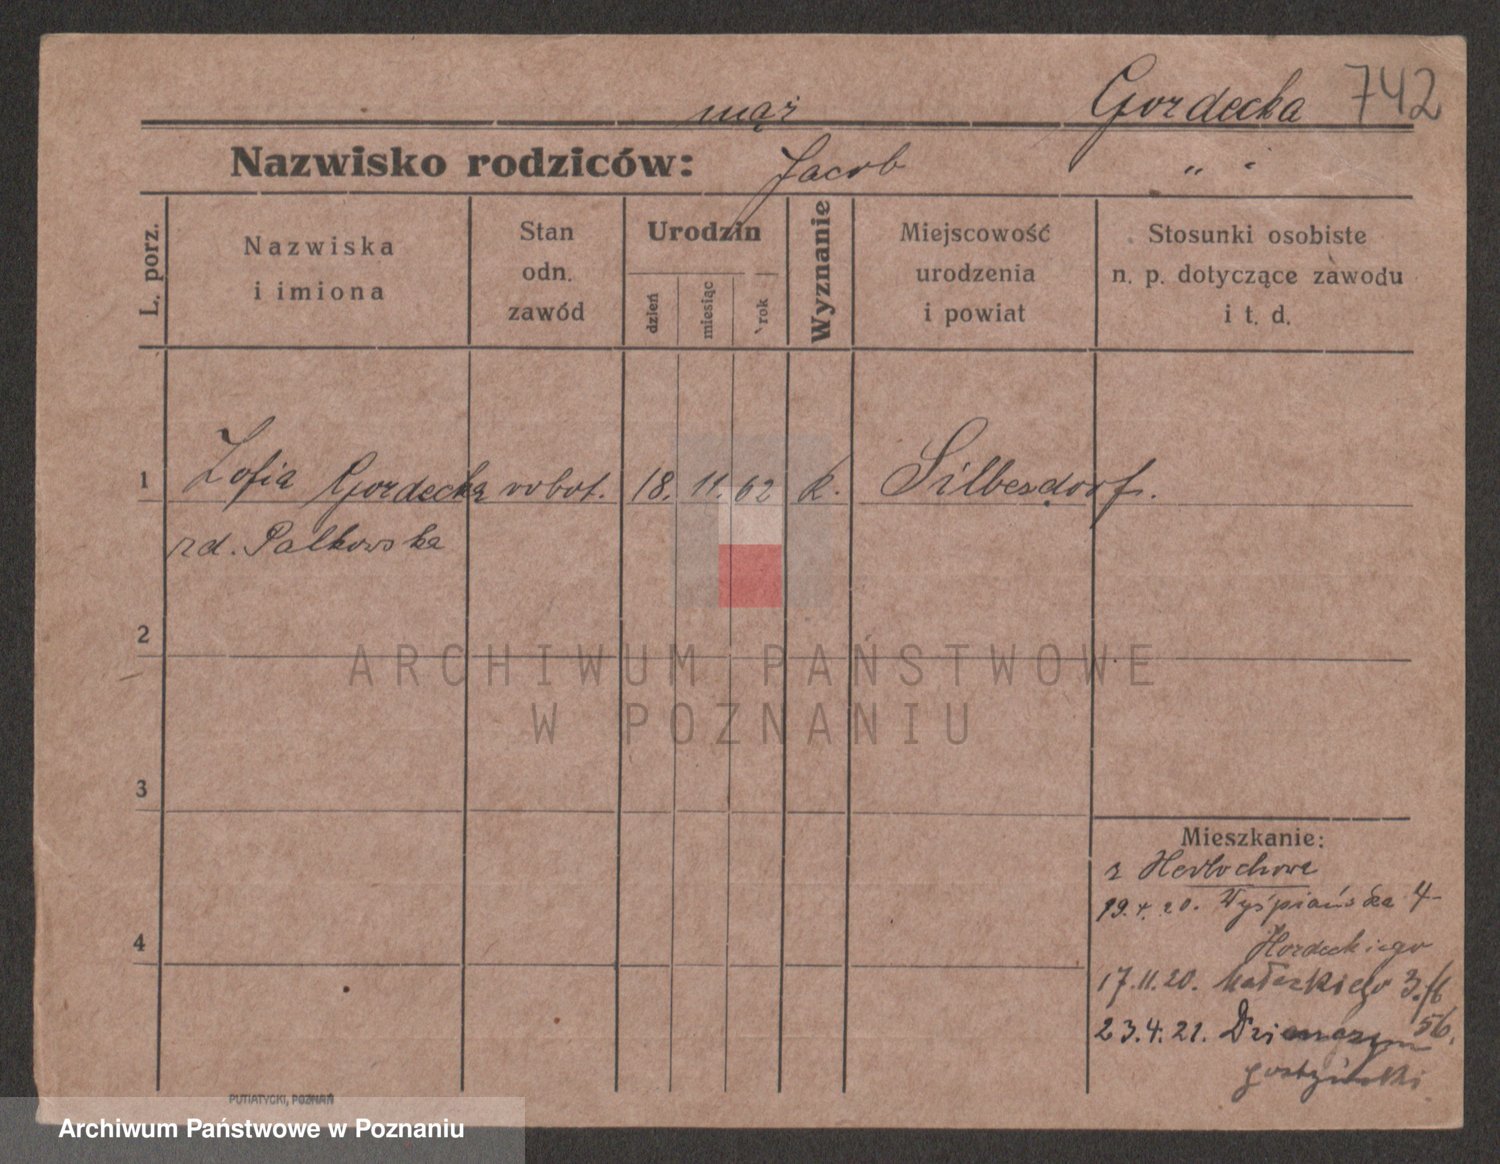 mąż Gordecka 742
Nazwisko rodziców: Jacob " "
L. porz.
Nazwiska
i imiona
Stan
odn.
zawód
Urodzin
dzień
miesiąc
rok
Wyznanie
Miejscowość
urodzenia
i powiat
Stosunki osobiste
n. p. dotyczące zawodu
i t. d.
1 Zofia Gordecka robot. 18. 11. 62 k. Silbesdorf.
rd. Palkowska
2
ARCHIWUM PAŃSTWOWE
W POZNANIU
3
Mieszkanie:
z
19.4.20. Wyśpiańska 4
4
17.11.20. Małeckiego 3.
23.4.21. 56.
gostyński
PUTIATYCKI, POZNAŃ
Archiwum Państwowe w Poznaniu